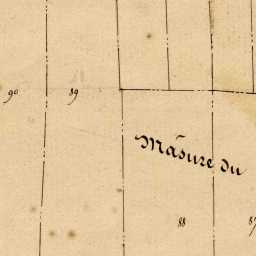 90
89
Mâsure du
88
87